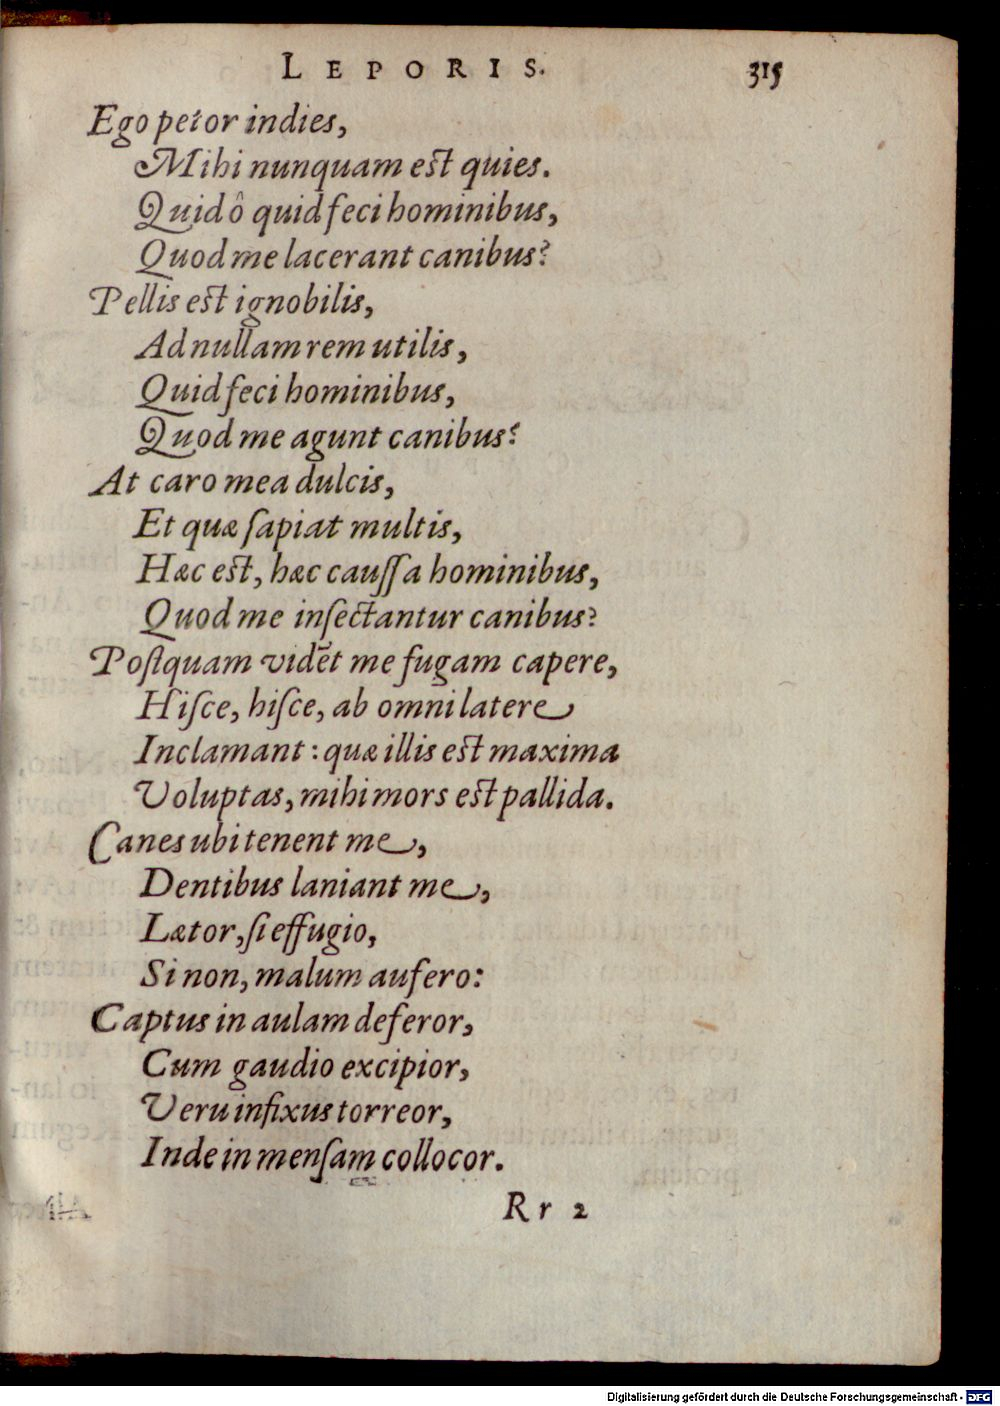 LEPORIS. 315
Ego petor indies,
Mihi nunquam est quies.
Quid ô quid feci hominibus,
Quod me lacerant canibus?
Pellis est ignobilis,
Ad nullam rem utilis,
Quid feci hominibus,
Quod me agunt canibus?
At caro mea dulcis,
Et quæ ſapiat multis,
Hæc est, hæc cauſſa hominibus,
Quod me inſectantur canibus?
Poſtquam vidēt me fugam capere,
Hiſce, hiſce, ab omni latere
Inclamant: quæ illis est maxima
Voluptas, mihi mors est pallida.
Canes ubi tenent me,
Dentibus laniant me,
Lætor, ſi effugio,
Si non, malum aufero:
Captus in aulam deferor,
Cum gaudio excipior,
Veru infixus torreor,
Inde in menſam collocor.
Rr 2
Digitalisierung gefördert durch die Deutsche Forschungsgemeinschaft - DFG